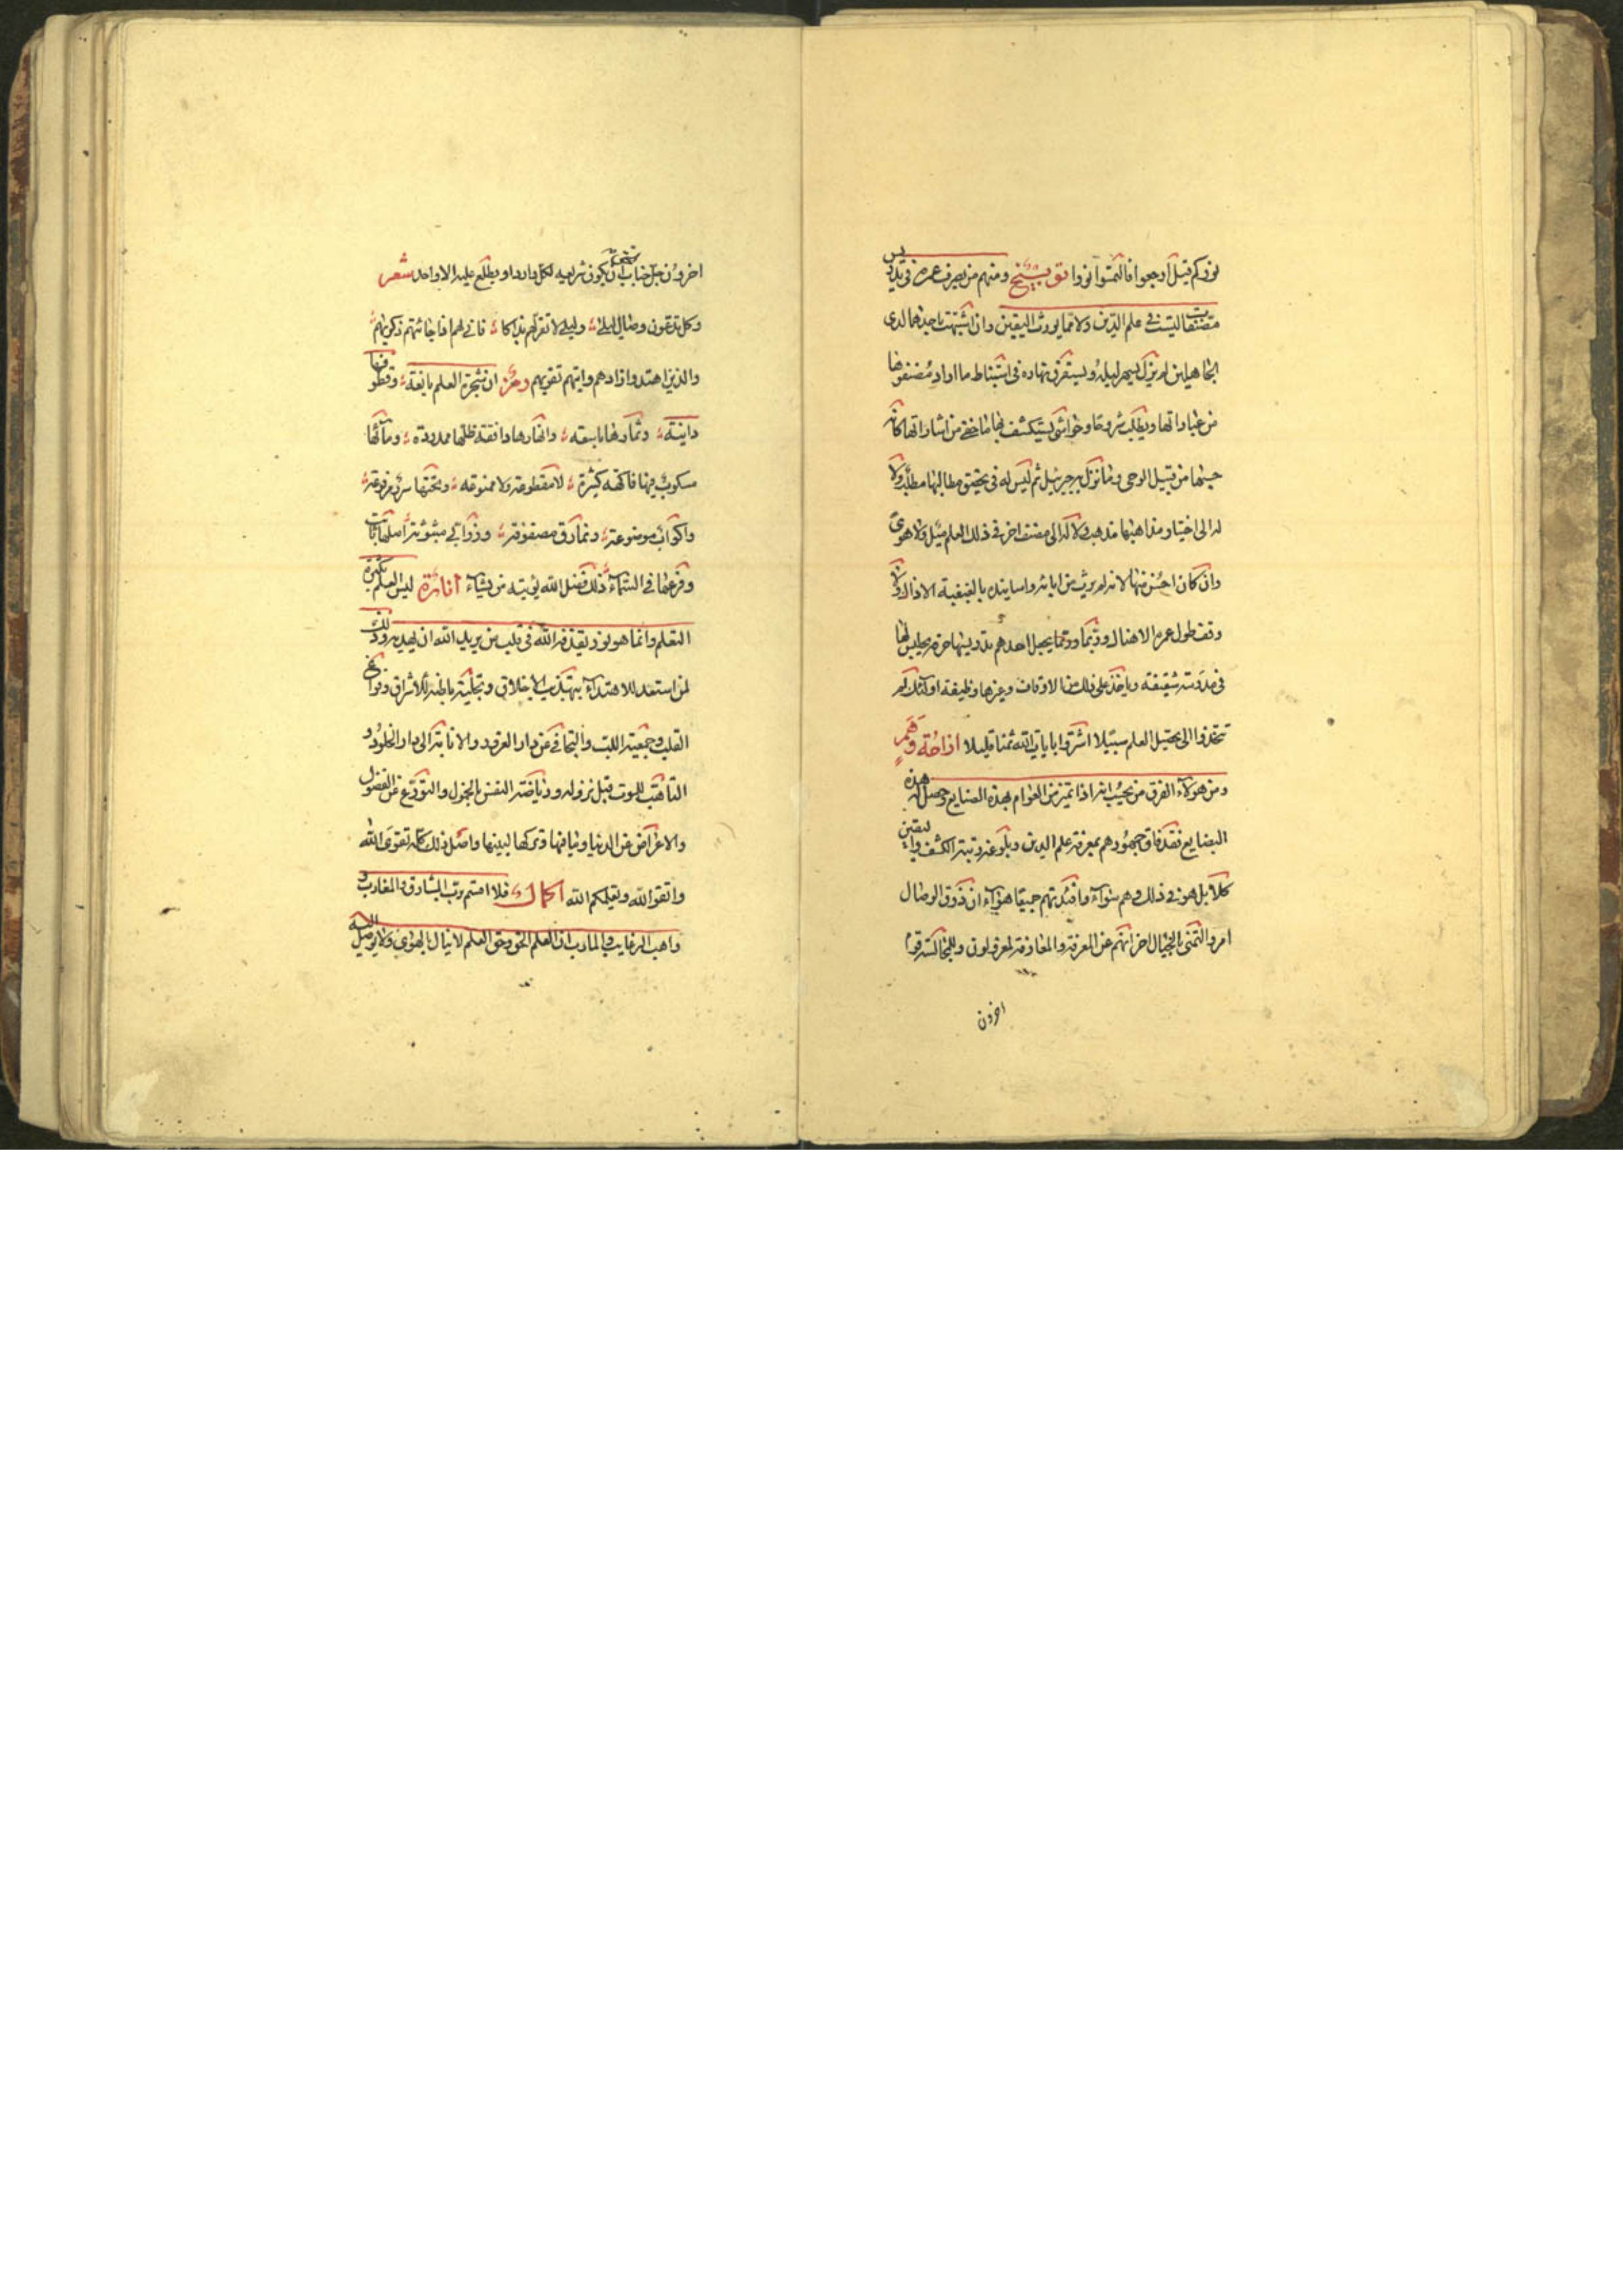 نوركم قيل ارجعوا فالتمسوا نورا توبيخ ومنهم من يصرف عمره في تدريس
مصنفات ليست في علم الدين ولا مما يورث اليقين وان اشتهت باحدها لدى
الجاهلين لم يزل يسهر ليله ويستغرق نهاره في استنباط ما اراد مصنفوها
من عباراتها ويطلب شروحا وحواشي يستكشف بها ما خفي من اشاراتها كانه
حسبها من قبيل الوحي وما نزل به جبرئيل ثم ليس له في تحقيق مطالبها مطلب ولا
له الى اختيار مذاهبها مذهب ولا له الى مصنف اخر في ذلك العلم ميل ولا هوى
وان كان احسن منها لانه لم يرث من ابائه واساتيذه بالغيغية الا ذاك
وقف طول عمره الا هناك وربما يجعل احدهم تدريسها حرفة يجلس لها
في مدرسة شقيقة وياخذ على ذلك من الاوقاف وغيرها وظيفة اولئك لم
تتخذوا الى تحصيل العلم سبيلا اشتروا بايات الله ثمنا قليلا ازاحة وهم
ومن هؤلاء الفرق من يحسب انه اذا تميز من العوام بهذه الصنايع وحصل له هذه
البضايع فقد فاق جمهورهم بمعرفة علم الدين وبلوغ رتبة الكشف واليقين
كلا بل هو في ذلك وهم سواء وافئدتهم جميعا هواء ان ذوق الوصال
امر والتمني بالخيال اخر انهم عن المعرفة والمعارف لمعزولون وللنجاسة قوم
اخرون
اخرون جل جناب الحق ان يكون شريعه لكل وارد او يطلع عليه الا واحد شعر
وكل يدعون وصال ليلى وليلى لا تقر لهم بذاكا فاني لهم اذا جائتهم ذكريهم
والذين اهتدوا زادهم واتيهم تقويهم رمز ان شجرة العلم يانعة وقطوفها
دانية وثمارها باسقة وانهارها دافقة ظلها ممدودة ومآئها
مسكوب فيها فاكهة كثيرة لا مقطوعة ولا ممنوعة وتحتها سرر مرفوعة
واكواب موضوعة ونمارق مصفوفة وزرابي مبثوثة اصلها ثابت
وفرعها في السماء ذلك فضل الله يؤتيه من يشاء انارة ليس العلم بكثرة
التعلم وانما هو نور يقذفه الله في قلب من يريد الله ان يهديه وذلك
لمن استعد للاهتداء بتهذيب الاخلاق وتحلية باطنه للاشراق وفراغ
القلب وجمعية اللب والتجافي عن دار الغرور والانابة الى دار الخلود و
التاهب للموت قبل نزوله ورياضة النفس بالخمول والتورع عن الفضول
والاعراض عن الدنيا وما فيها وتركها لبنيها واصل ذلك كله تقوى الله
واتقوا الله ويعلمكم الله اكمال فلا اقسم برب المشارق والمغارب و
واهب الرغايب والمارب ان العلم الحق وحق العلم لا ينال بالهوى ولا يوصل اليه